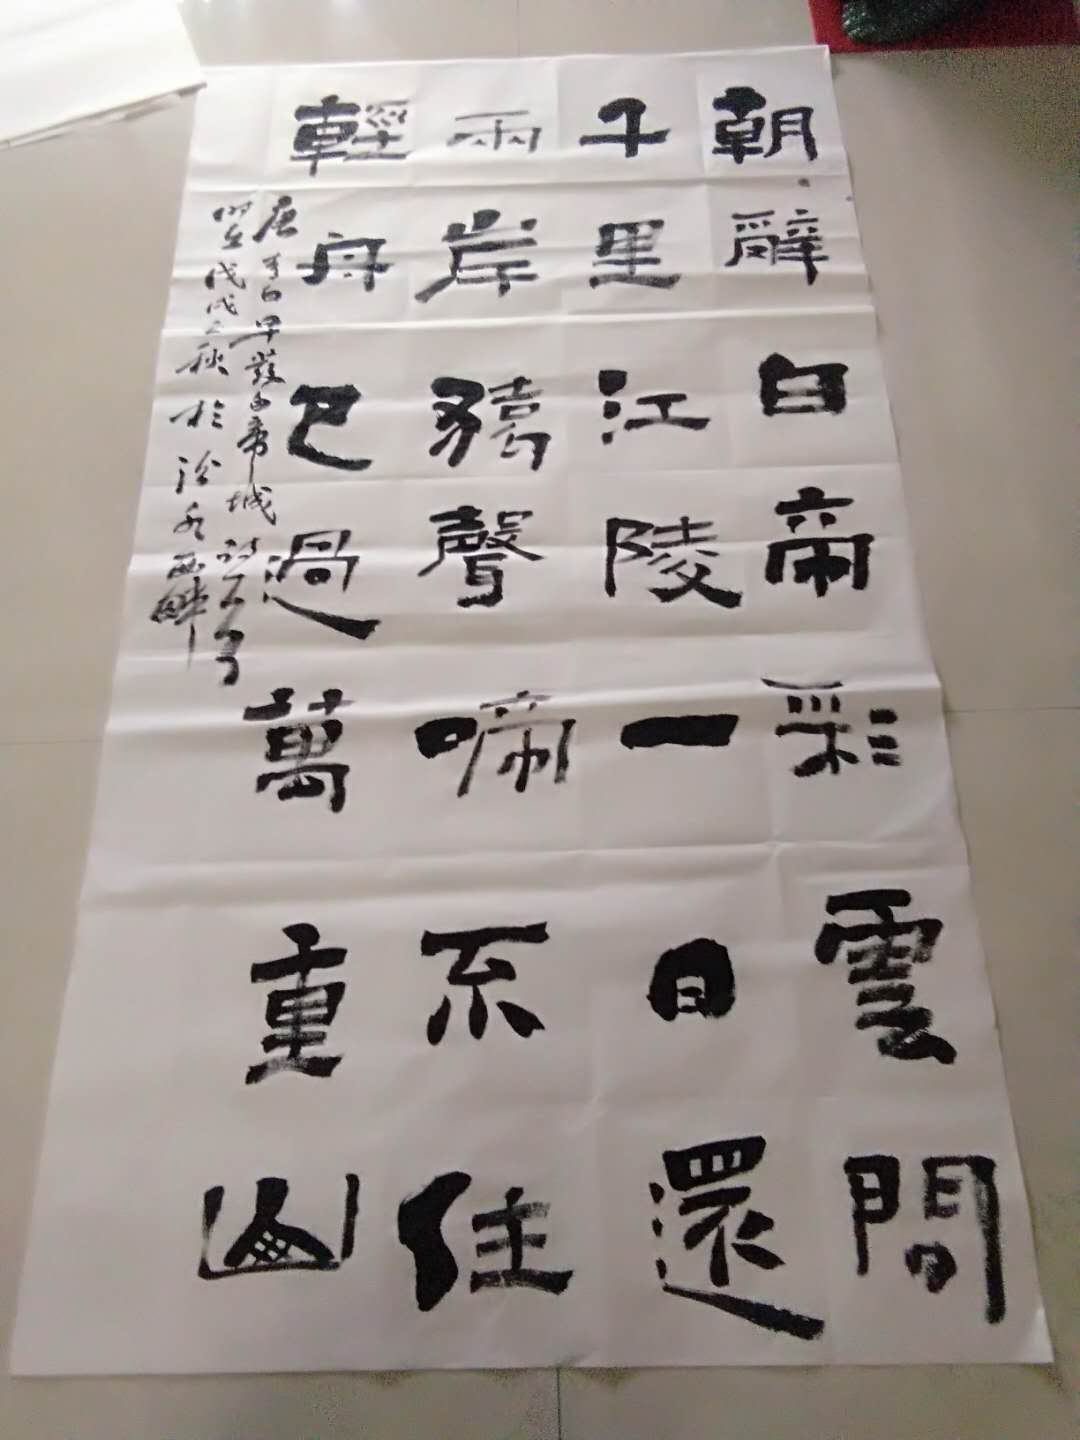 朝辭白帝彩雲間
千里江陵一日還
兩岸猿聲啼不住
輕舟已過萬重山
唐李白早發白帝城詩一首
時在戊戌之秋於汾水西畔